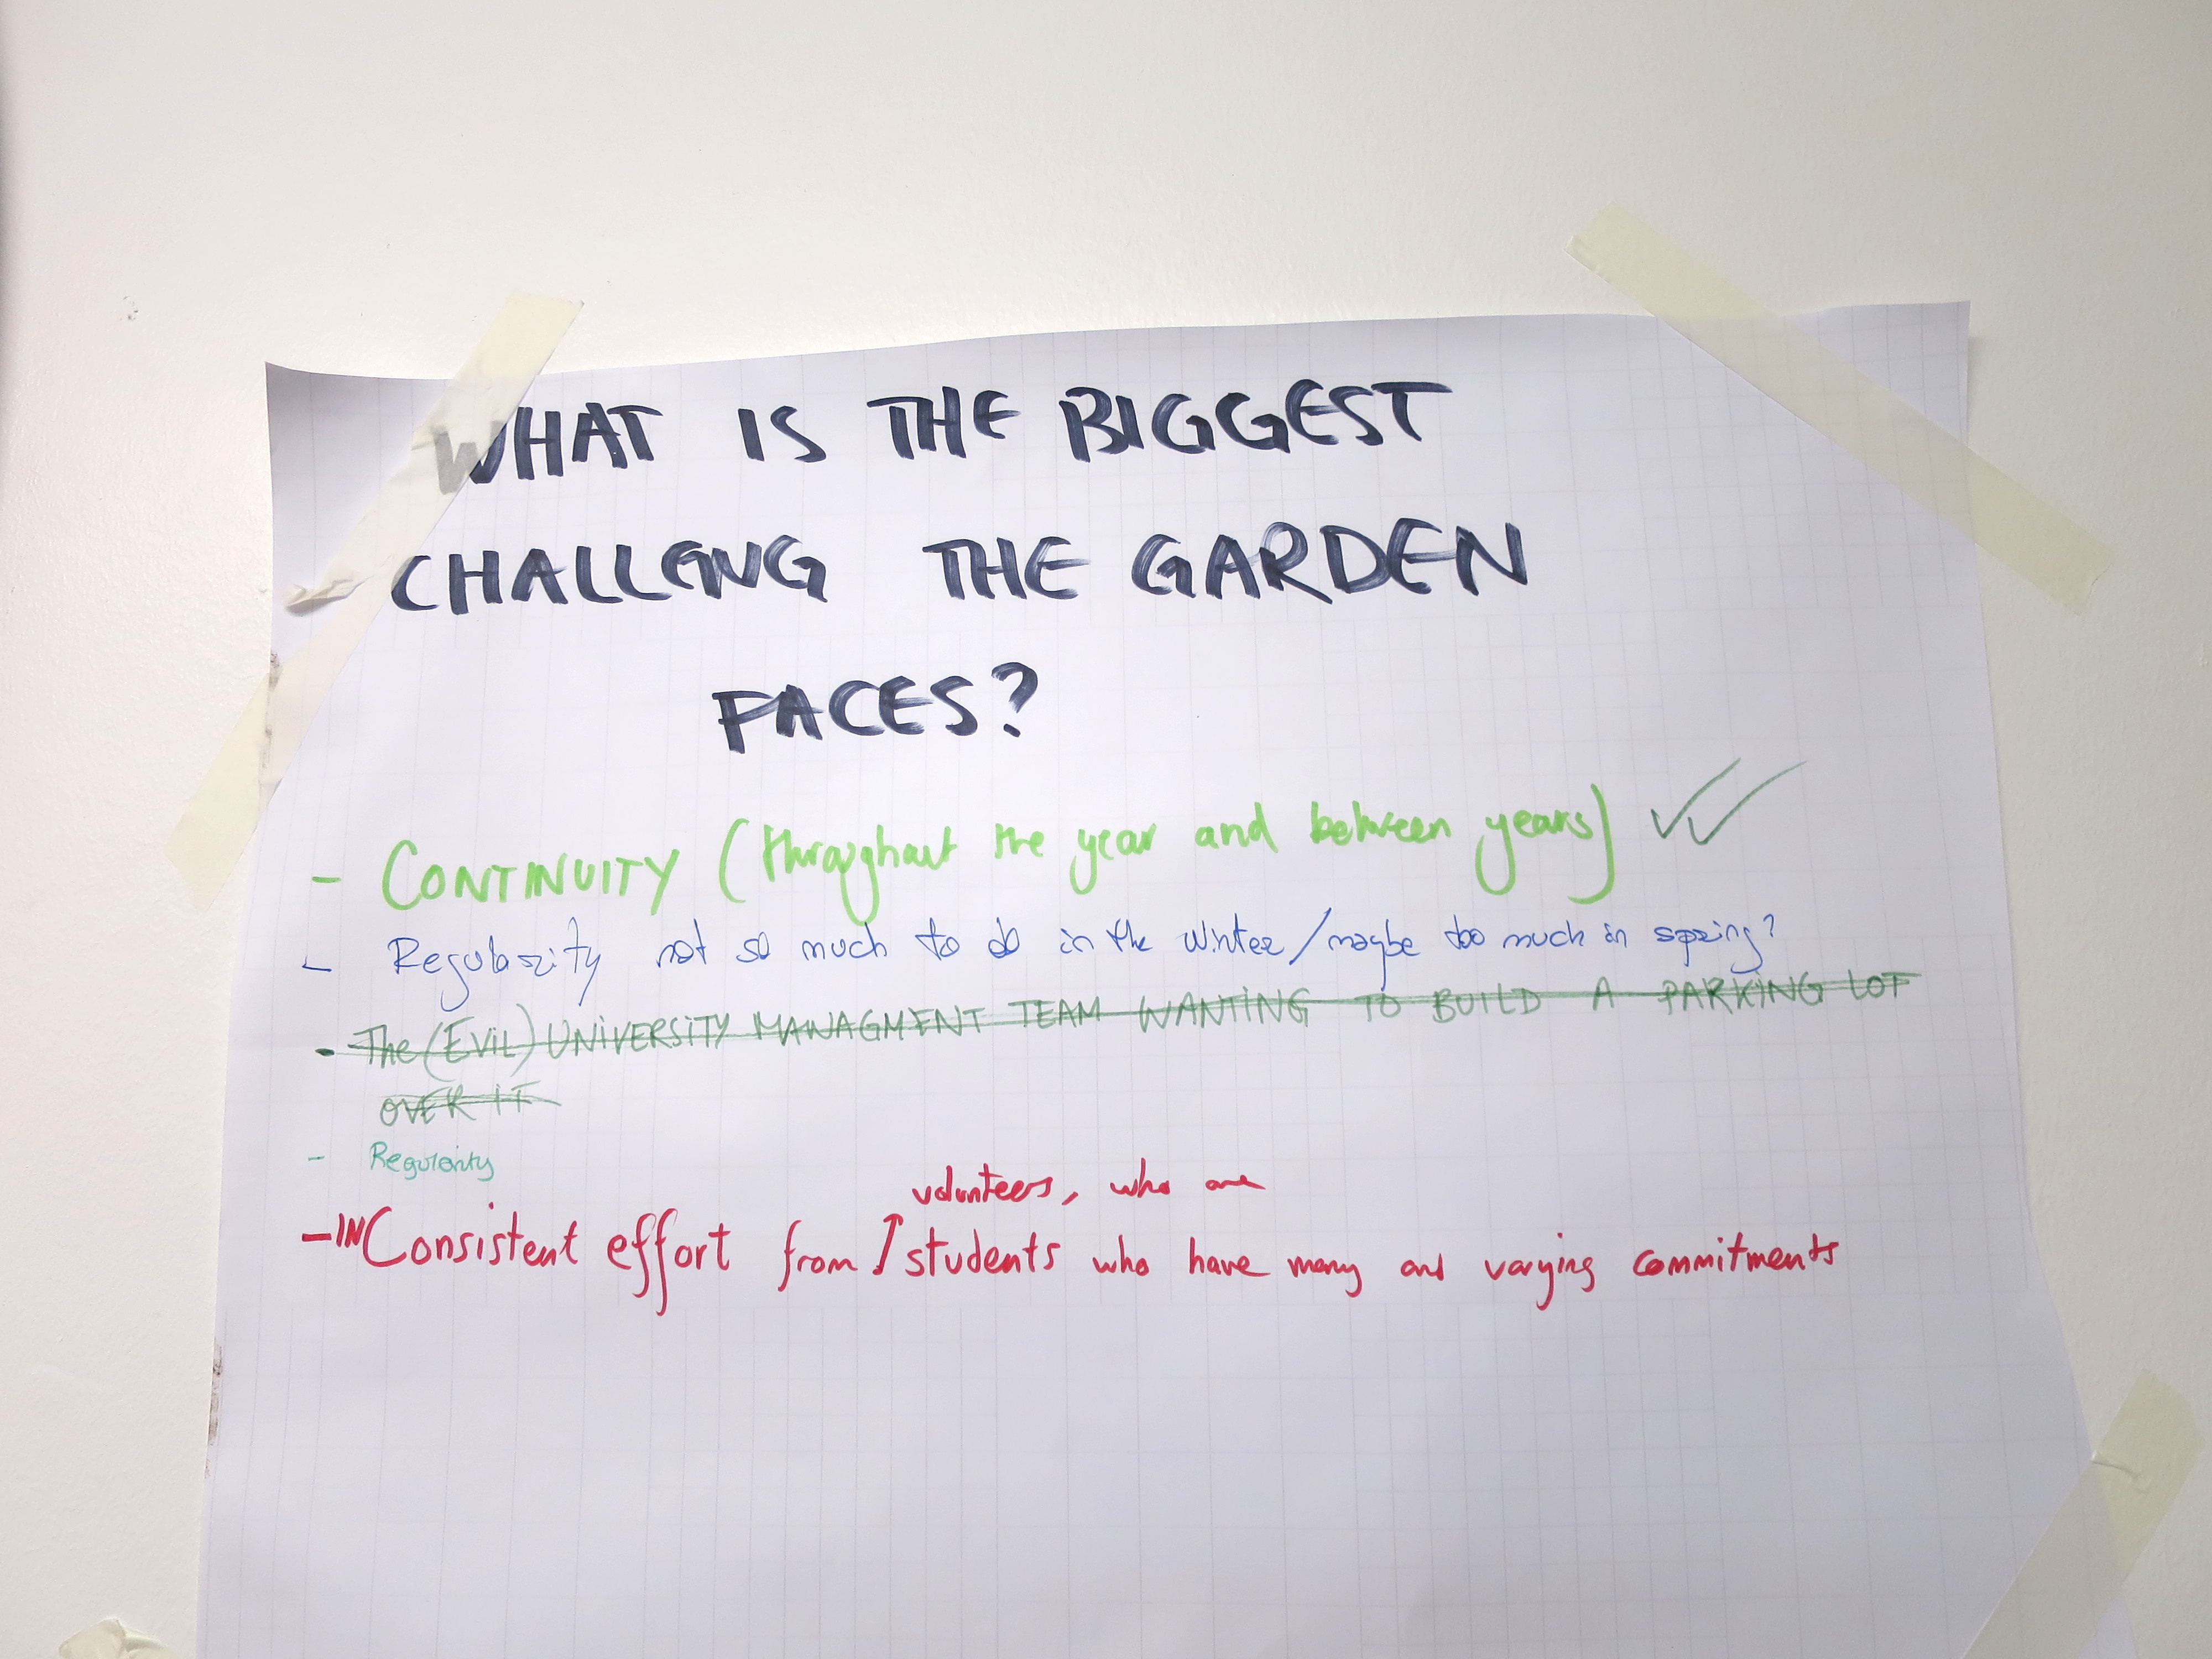 WHAT IS THE BIGGEST
CHALLENG THE GARDEN
FACES?
- CONTINUITY (throughout the year and between years) ✓✓
- Regularity not so much to do in the winter/maybe too much in spring?
- The (EVIL) UNIVERSITY MANAGMENT TEAM WANTING TO BUILD A PARKING LOT
OVER IT
- Regularity
volunteers, who are
- INConsistent effort from students who have many and varying commitments